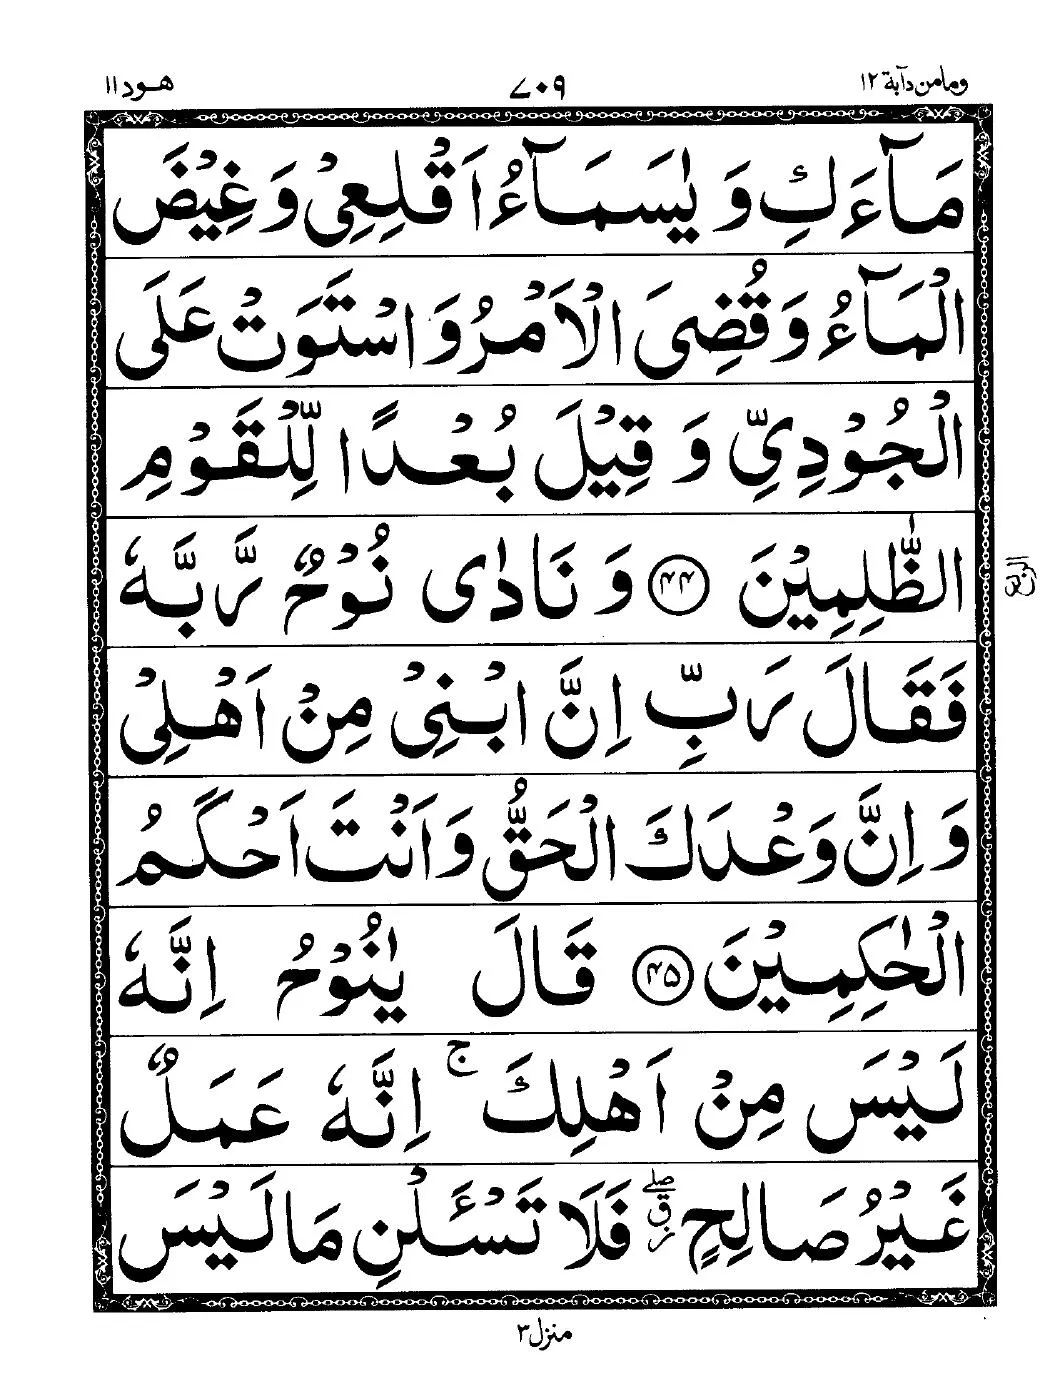 ومامن دآبة ١٢ ٧٠٩ هود ١١
مَآءَكِ وَ يٰسَمَآءُ اَقْلِعِیْ وَ غِيْضَ
الْمَآءُ وَ قُضِیَ الْاَمْرُ وَ اسْتَوَتْ عَلَی
الْجُوْدِیِّ وَ قِيْلَ بُعْدًا لِّلْقَوْمِ
الظّٰلِمِيْنَ ﴿۴۴﴾ وَ نَادٰی نُوْحٌ رَّبَّهٗ
فَقَالَ رَبِّ اِنَّ ابْنِیْ مِنْ اَهْلِیْ
وَ اِنَّ وَعْدَكَ الْحَقُّ وَ اَنْتَ اَحْكَمُ
الْحٰكِمِيْنَ ﴿۴۵﴾ قَالَ يٰنُوْحُ اِنَّهٗ
لَيْسَ مِنْ اَهْلِكَ ۚ اِنَّهٗ عَمَلٌ
غَيْرُ صَالِحٍ ۖ ق ز فَلَا تَسْـَٔلْنِ مَا لَيْسَ
الربع
منزل ٣